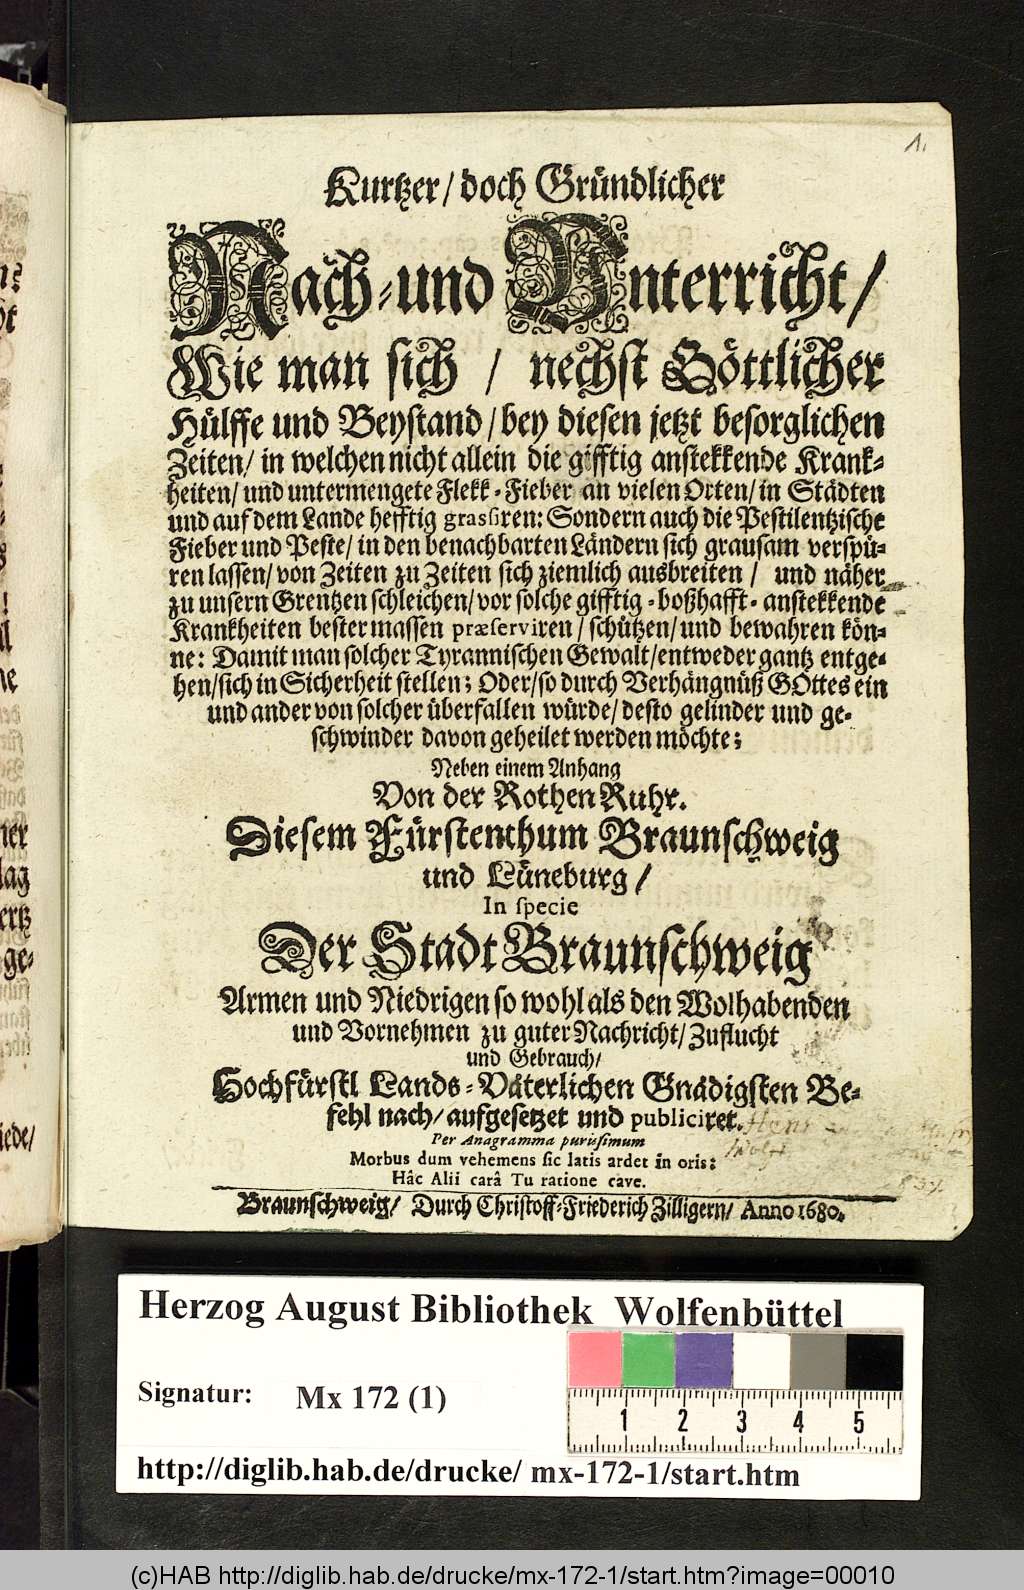 1.
Kurtzer/ doch Gründlicher
Nach-und Unterricht/
Wie man sich / nechst Göttlicher
Hülffe und Beystand/ bey diesen jetzt besorglichen
Zeiten/ in welchen nicht allein die gifftig anstekkende Krank-
heiten/ und untermengete Flekk-Fieber an vielen Orten/ in Städten
und auf dem Lande hefftig grassiren: Sondern auch die Pestilentzische
Fieber und Peste/ in den benachbarten Ländern sich grausam verspü-
ren lassen/ von Zeiten zu Zeiten sich ziemlich ausbreiten/ und näher
zu unsern Grentzen schleichen/ vor solche gifftig-boßhafft-anstekkende
Krankheiten bester massen præserviren/ schützen/ und bewahren kön-
ne: Damit man solcher Tyrannischen Gewalt/ entweder gantz entge-
hen/ sich in Sicherheit stellen; Oder/ so durch Verhängnüß GOttes ein
und ander von solcher überfallen würde/ desto gelinder und ge-
schwinder davon geheilet werden möchte;
Neben einem Anhang
Von der Rothen Ruhr.
Diesem Fürstenthum Braunschweig
und Lüneburg/
In specie
Der Stadt Braunschweig
Armen und Niedrigen so wohl als den Wolhabenden
und Vornehmen zu guter Nachricht/ Zuflucht
und Gebrauch/
Hochfürstl Lands-Väterlichen Gnädigsten Be-
fehl nach/ aufgesetzet und publiciret.
Per Anagramma purissimum
Morbus dum vehemens sic latis ardet in oris:
Hâc Alii carâ Tu ratione cave.
Braunschweig/ Durch Christoff-Friederich Zilligern/ Anno 1680.
Herzog August Bibliothek Wolfenbüttel
Signatur: Mx 172 (1)
1 2 3 4 5
http://diglib.hab.de/drucke/ mx-172-1/start.htm
(c)HAB http://diglib.hab.de/drucke/mx-172-1/start.htm?image=00010